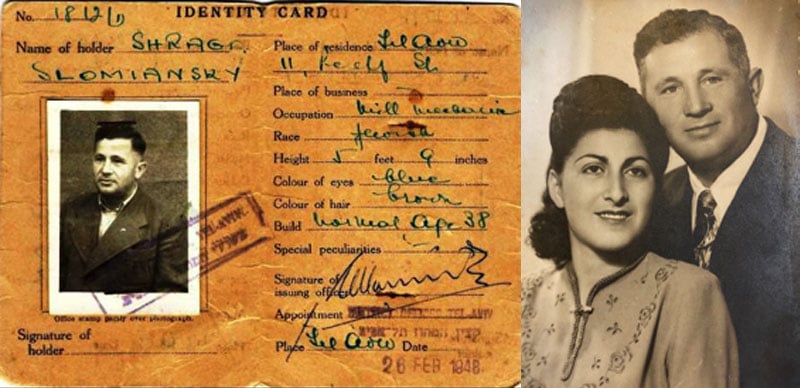 No. 18/2/
IDENTITY CARD
Name of holder SHRAGA
SLOMIANSKY
Place of residence Tel Aviv
11, St.
Place of business
Occupation Mill mechanic
Race Jewish
Height 5 feet 9 inches
Colour of eyes blue
Colour of hair brown
Build Normal Age 38
Special peculiarities
Signature of
issuing officer
Appointment DISTRICT OFFICER, TEL AVIV
קצין המחוז תל-אביב
Place Tel Aviv Date
26 FEB 1948
Office stamp partly over photograph.
Signature of
holder